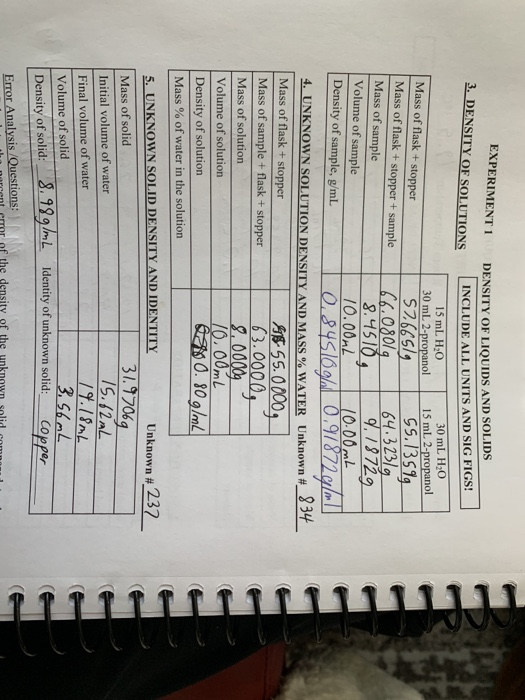 EXPERIMENT 1 DENSITY OF LIQUIDS AND SOLIDS
3. DENSITY OF SOLUTIONS INCLUDE ALL UNITS AND SIG FIGS!
15 mL H₂O 30 mL H₂O
30 mL 2-propanol 15 mL 2-propanol
Mass of flask + stopper 57.6651g 55.1359g
Mass of flask + stopper + sample 66.0801g 64.3231g
Mass of sample 8.4510g 9.1872g
Volume of sample 10.00mL 10.00mL
Density of sample, g/mL 0.84510g/ml 0.91872g/ml
4. UNKNOWN SOLUTION DENSITY AND MASS % WATER Unknown # 834
Mass of flask + stopper 55.0000g
Mass of sample + flask + stopper 63.0000g
Mass of solution 8.0000g
Volume of solution 10.00mL
Density of solution 0.80g/mL
Mass % of water in the solution
5. UNKNOWN SOLID DENSITY AND IDENTITY Unknown # 237
Mass of solid 31.9706g
Initial volume of water 15.62mL
Final volume of water 19.18mL
Volume of solid 3.56mL
Density of solid: 8.98g/mL Identity of unknown solid: copper
Error Analysis /Questions:
percent error of the density of the unknown solid